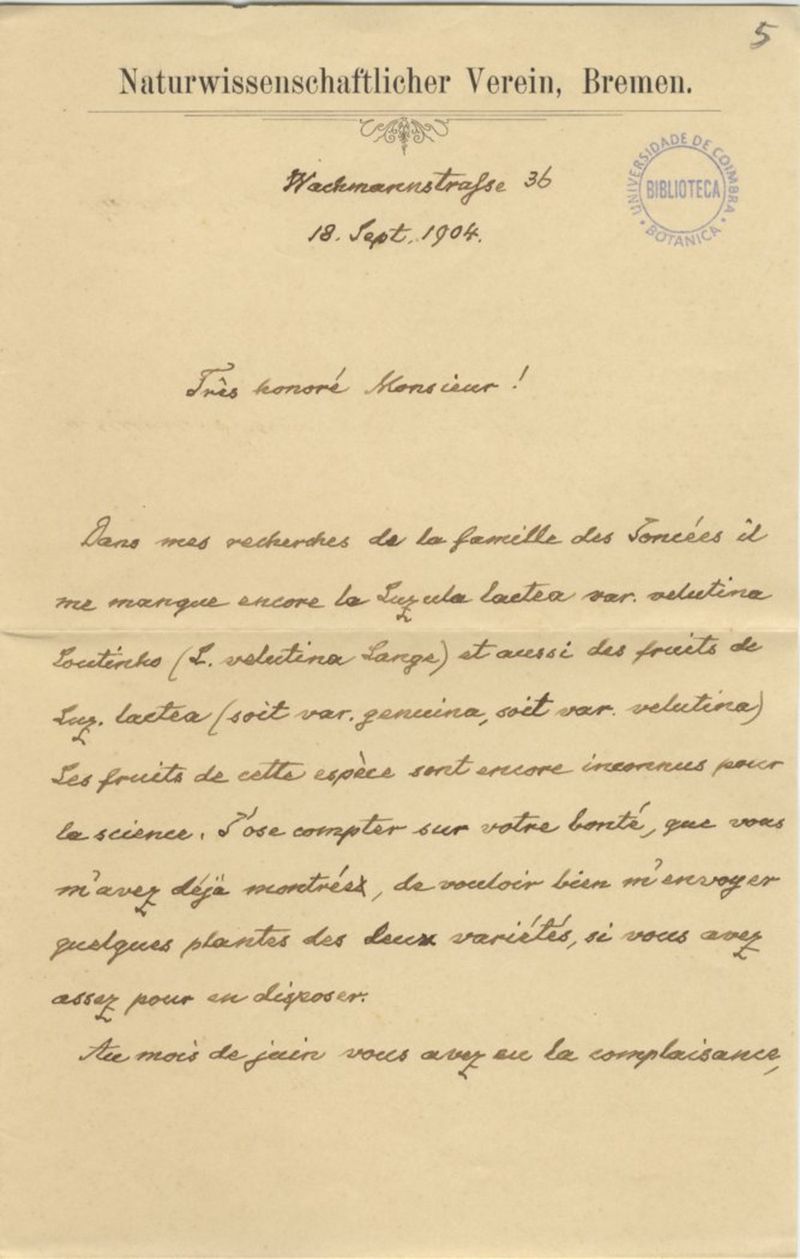 5
Naturwissenschaftlicher Verein, Bremen.
Wachmannstraſse 36
18. Sept. 1904.
UNIVERSIDADE DE COIMBRA
BIBLIOTECA
BOTANICA
Très honoré Monsieur !
Dans mes recherches de la famille des Joncées il
me manque encore la Luzula lactea var. velutina
Coutinho (L. velutina Lange) et aussi des fruits de
Luz. lactea (soit var. genuina, soit var. velutina)
Les fruits de cette espèce sont encore inconnus pour
la science. J'ose compter sur votre bonté, que vous
m'avez déjà montrée, de vouloir bien m'envoyer
quelques plantes des deux variétés, si vous avez
assez pour en disposer.
Au mois de juin vous avez eu la complaisance,